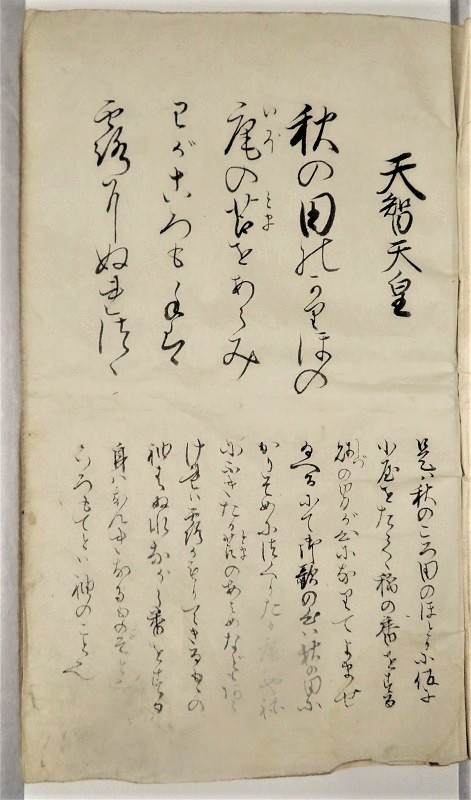 天智天皇
秋の田のかりほの
庵の苫をあらみ
いほ
とま
わが衣ころも手は
露にぬれつゝ
是は秋のころ田のほとりに仮に
小屋をたてゝ稲の番をする
賤の男が心になりてよませ
しづ
給ふにて御歌の心は秋の田に
かりそめにつくりたる
にふきたる苫のあらめなどより
とま
ければ露がもりてきるものゝ
袖もぬれながら番をする
身はなんぎなるものぞと
ころもでとは袖のこと也